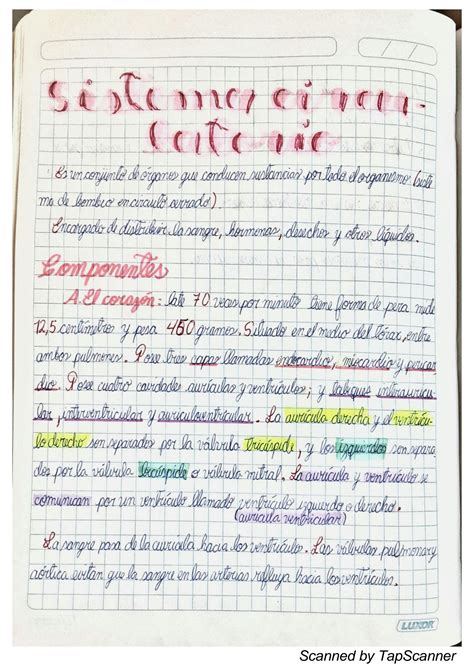 Sistema circu-
latorio
Es un conjunto de organos que conducen sustancias por todo el organismo (siste
ma de bombeo en circuito cerrado).
Encargado de distribuir la sangre, hormonas, desechos y otros líquidos.
Componentes
A. El corazón: late 70 veces por minuto tiene forma de pera mide
12,5 centímetro y pesa 450 gramos. Situado en el medio del tórax, entre
ambos pulmones. Pose tres capas llamadas endocardio, miocardio y pericar
dio. Pose cuatro cavidades auriculas y ventrículos; y tabiques interauricu
lar, interventricular y auriculoventricular. La auricula derecha y el ventrícu
lo derecho son separados por la válvula tricúspide, y los izquierdos son separa
dos por la válvula bicúspide o válvula mitral. La auricula y ventrículo se
comunican por un ventrículo llamado ventrículo izquierdo o derecho.
(auricula ventricular)
La sangre pasa de la auricula hacia los ventrículo. Las válvulas pulmonar y
aórtica evitan que la sangre en las arterias refluya hacia los ventrículos.
LUXOR
Scanned by TapScanner